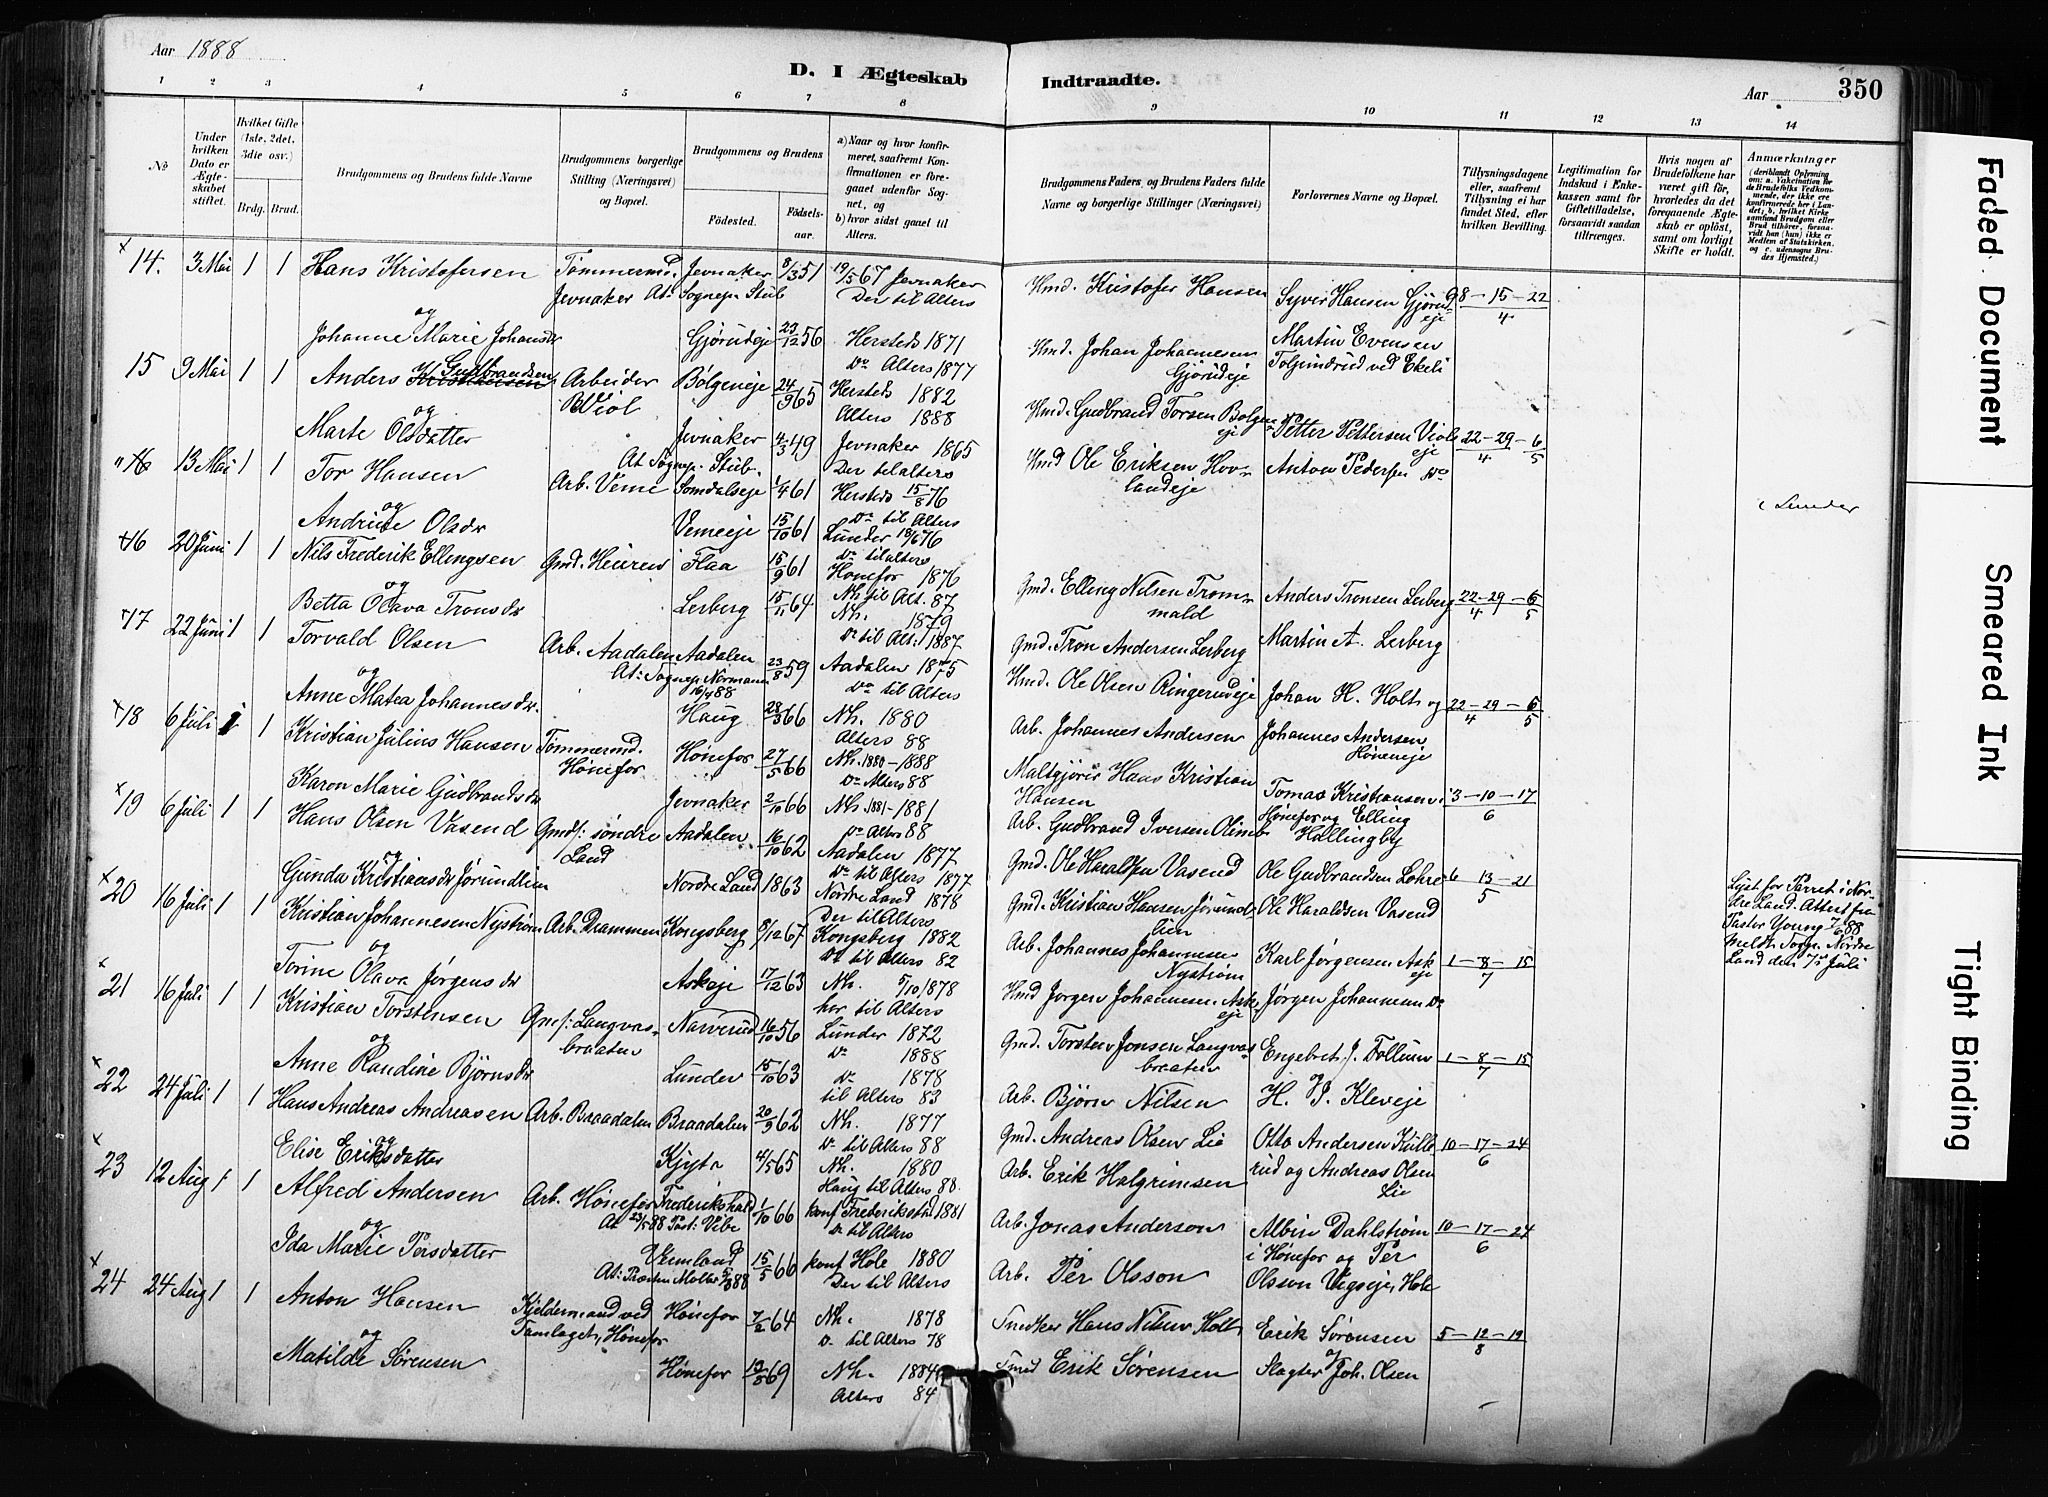 Aar 1888
D. I Ægteskab Indtraadte.
Aar 350
1 2 3 4 5 6 7 8 9 10 11 12 13 14
No
Under hvilken Dato er Ægteskabet stiftet.
Hvilket Gifte (1ste, 2det, 3die osv.)
Brdg. Brud.
Brudgommens og Brudens fulde Navne
Brudgommens borgerlige Stilling (Næringsvei) og Bopæl.
Brudgommens og Brudens
Fødested. Fødselsaar.
a) Naar og hvor konfirmeret, saafremt Konfirmationen er foregaaet udenfor Sognet, og
b) hvor sidst gaaet til Alters.
Brudgommens Faders og Brudens Faders fulde Navne og borgerlige Stillinger (Næringsvei)
Forlovernes Navne og Bopæl.
Tillysningsdagene eller, saafremt Tillysning ei har fundet Sted, efter hvilken Bevilling.
Legitimation for Indskud i Enkekassen samt for Giftetilladelse, forsaavidt saadan tiltrænges.
Hvis nogen af Brudefolkene har været gift før, hvorledes da det foregaaende Ægteskab er opløst, samt om lovligt Skifte er holdt.
Anmærkninger
14. 3 Mai 1 1 Hans Kristofersen Tømmermd. Jevnaker 8/3 51 19/5 67 Jevnaker
Jevnaker At. Sognepr. Stub Der til Alters
Hmd. Kristofer Hansen Syver Hansen Gjørudeje 8-15-22/4
og
Johanne Marie Johansdr Gjørudeje 23/12 56 Hersteds 1871
Do Alters 1877
Hmd. Johan Johannesen Gjørudeje Martin Evensen
15 9 Mai 1 1 Anders Gudbrandsen Arbeider Bølgeneje 24/9 65 Hersteds 1882
Viol Alters 1888
Hmd. Gudbrand Torsen Petter Pettersen Violseje 22-29-6/4 5
og
Marte Olsdatter Jevnaker 4/3 49 Jevnaker 1865
At Sognepr. Stub. Der til alters
Hmd Ole Eriksen Hovlandeje Anton Pedersen Do
16 13 Mai 1 1 Tor Hansen Arb. Veme Somdalseje 1/4 61 Hersteds 15/8 76
Do til Alters
og
Olsdr Vemeeje 15/10 61 Lunder 76
Do til alters
i Lunder
16 20 Juni 1 1 Nils Frederik Ellingsen Gmd. Flaa 15/9 61 Hønefos 1876
Nh til Alt. 87
Gmd. Elling Nilsen Trommald Anders Tronsen Lerberg 22-29-6/4 5
og
Betta Olava Tronsdr Lerberg 15/11 64 Nh. 1879
Do til Alt. 1887
Gmd. Tron Andersen Lerberg Martin A. Lerberg
17 22 Juni 1 1 Torvald Olsen Arb. Aadalen Aadalen 23/8 59 Aadalen 1875
At: Sognepr. Normann 16/4 88 Do til Alters
Hmd. Ole Olsen Ringerudeje Johan H. Holt og 22-29-6/4 5
og
Anne Matea Johannesdr. Haug 28/3 66 Nh. 1880
Alters 88
Arb. Johannes Andersen Johannes Andersen Høneneje
18 6 Juli 1 1 Kristian Julius Hansen Tømmermd. Hønefos Hønefos 27/5 66 Nh. 1880-1888
Do Alters 88
Hans Kristian Hansen Tomas Kristiansen i 3-10-17/6
Karen Marie Gudbrandsdr Jevnaker 2/10 66 Nh. 1881-1881
Do Alters 88
Arb. Gudbrand Iversen Hønefos og Elling Hallingby
19 6 Juli 1 1 Hans Olsen Vasend Gmds: søndre Land Aadalen 16/10 62 Aadalen 1877
Do til Alters 1877
Gmd. Ole Haraldsen Vasend Ole Gudbrandsen Lohre 6 13-21/5
og
Gunda Kristiansdr Jørundlien Nordre Land 1863 Nordre Land 1878
Der til Alters
Gmd. Kristian Hansen Jørundlien Ole Haraldsen Vasend
Lyst for Parret i Nordre Land. Attest fra Pastor Young 7/6 88
Meldt Sogn. Nordre Land den 7de Juli
20 16 Juli 1 1 Kristian Johannesen Nystrøm Arb. Drammen Kongsberg 8/12 67 Kongsberg 1882
Do til Alters 82
Arb. Johannes Johannesen Nystrøm Karl Jørgensen Askeje 1-8-15/7
og
Torine Olava Jørgensdr Askeje 17/12 63 Nh. 5/10 1878
her til Alters
Hmd Jørgen Johannesen Askeje Jørgen Johannesen Do
21 16 Juli 1 1 Kristian Torstensen Gmds: Langvasbraaten Narverud 16/10 56 Lunder 1872
Do 1888
Gmd. Torsten Jonsen Langvasbraaten Engebret J. Follum 1-8-15/7
og
Anne Randine Bjørnsdr Lunder 15/10 63 Do 1878
til Alters 83
Arb. Bjørn Nilsen og H. P. Kleveje
22 24 Juli 1 1 Hans Andreas Andreasen Arb. Braadalen Braadalen 20/9 62 Nh. 1877
Do til Alters 88
Gmd. Andreas Olsen Lie Otto Andersen Kullerud og Andreas Olsen Lie 10-17-24/6
og
Elise Eriksdatter 4/5 65 Nh. 1880
Haug til Alters 88.
Arb. Erik Halgrimsen
23 12 Aug 1 1 Alfred Andersen Arb. Hønefos Frederikshald 1/10 66 konf Frederikstad 1881
Do til Alters
Arb. Jonas Anderson Albin Dahlstrøm i Hønefos og Per 10-17-24/6
og
Ida Marie Persdatter Vermland 15/5 66 konf Hole 1880
Der til Alters
Arb. Per Olsson Olsson Vegseje, Hole
24 24 Aug 1 1 Anton Hansen Kjeldermand ved Samlaget, Hønefos Hønefos 7/2 64 Nh. 1878
Do til Alters 78
Snedker Hans Nilsen Holt Erik Sørensen 5-12-19/8
og
Matilde Sørensen Hønefos 69 Nh. 1884
Alters 84
Smed Erik Sørensen og Slagter Joh. Olsen
Faded Document
Smeared Ink
Tight Binding